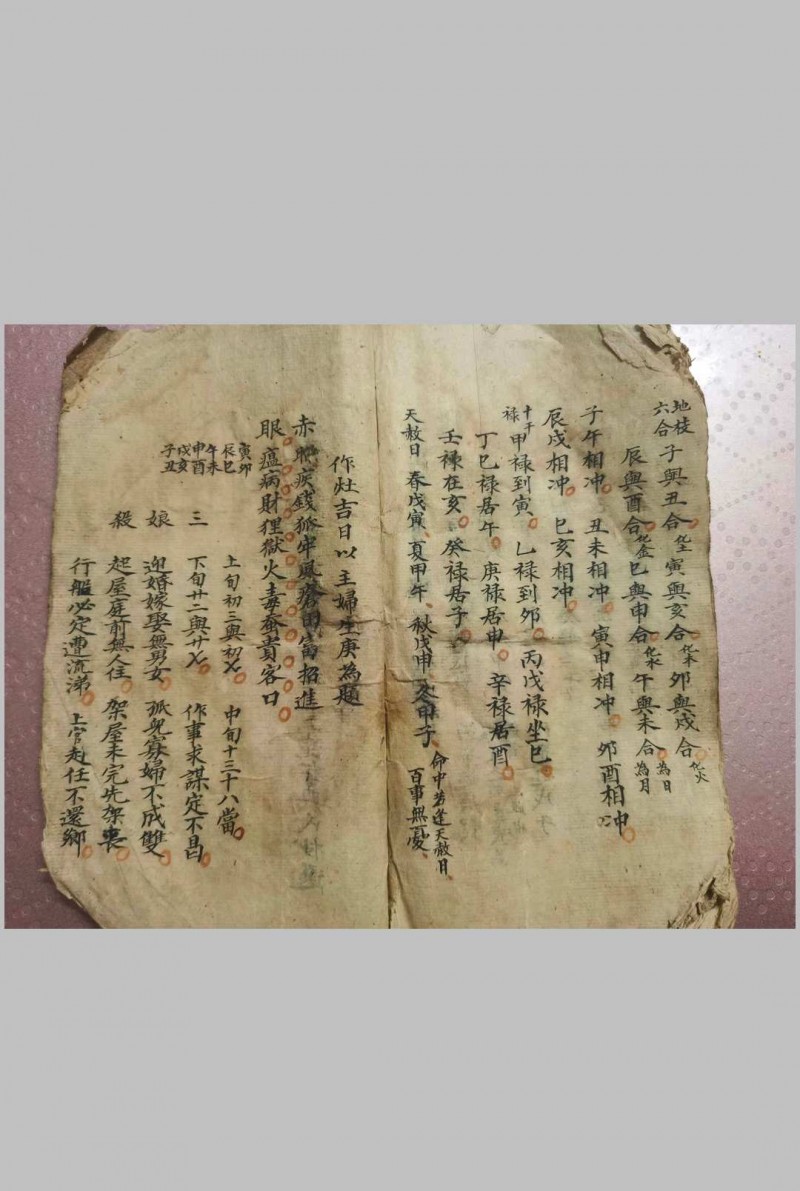 地枝六合 子與丑合化土 寅與亥合化木 卯與戌合化火
辰與酉合化金 巳與申合化水 午與未合為日為月
子午相冲 丑未相冲 寅申相冲 卯酉相冲
辰戌相冲 巳亥相冲
十干禄 甲禄到寅 乙禄到卯 丙戊禄坐巳
丁巳禄居午 庚禄居申 辛禄居酉
壬禄在亥 癸禄居子
天赦日 春戊寅、夏甲午、秋戊申、冬甲子、命中若逢天赦日、百事無憂、
作灶吉日以主婦生庚為題
赤眼疾錢狐牢風瘡田富招進
眼瘟病財狸獄火毒蚕貴客口
寅卯
辰巳
午未
申酉
戌亥
子丑
三娘殺
上旬初三與初七 中旬十三十八當
下旬廿二與廿七 作事求謀定不昌
迎婚嫁娶無男女 孤兒寡婦不成雙
起屋庭前無人住 架屋未完先架喪
行船必定遭流涕 上官赴任不還鄉